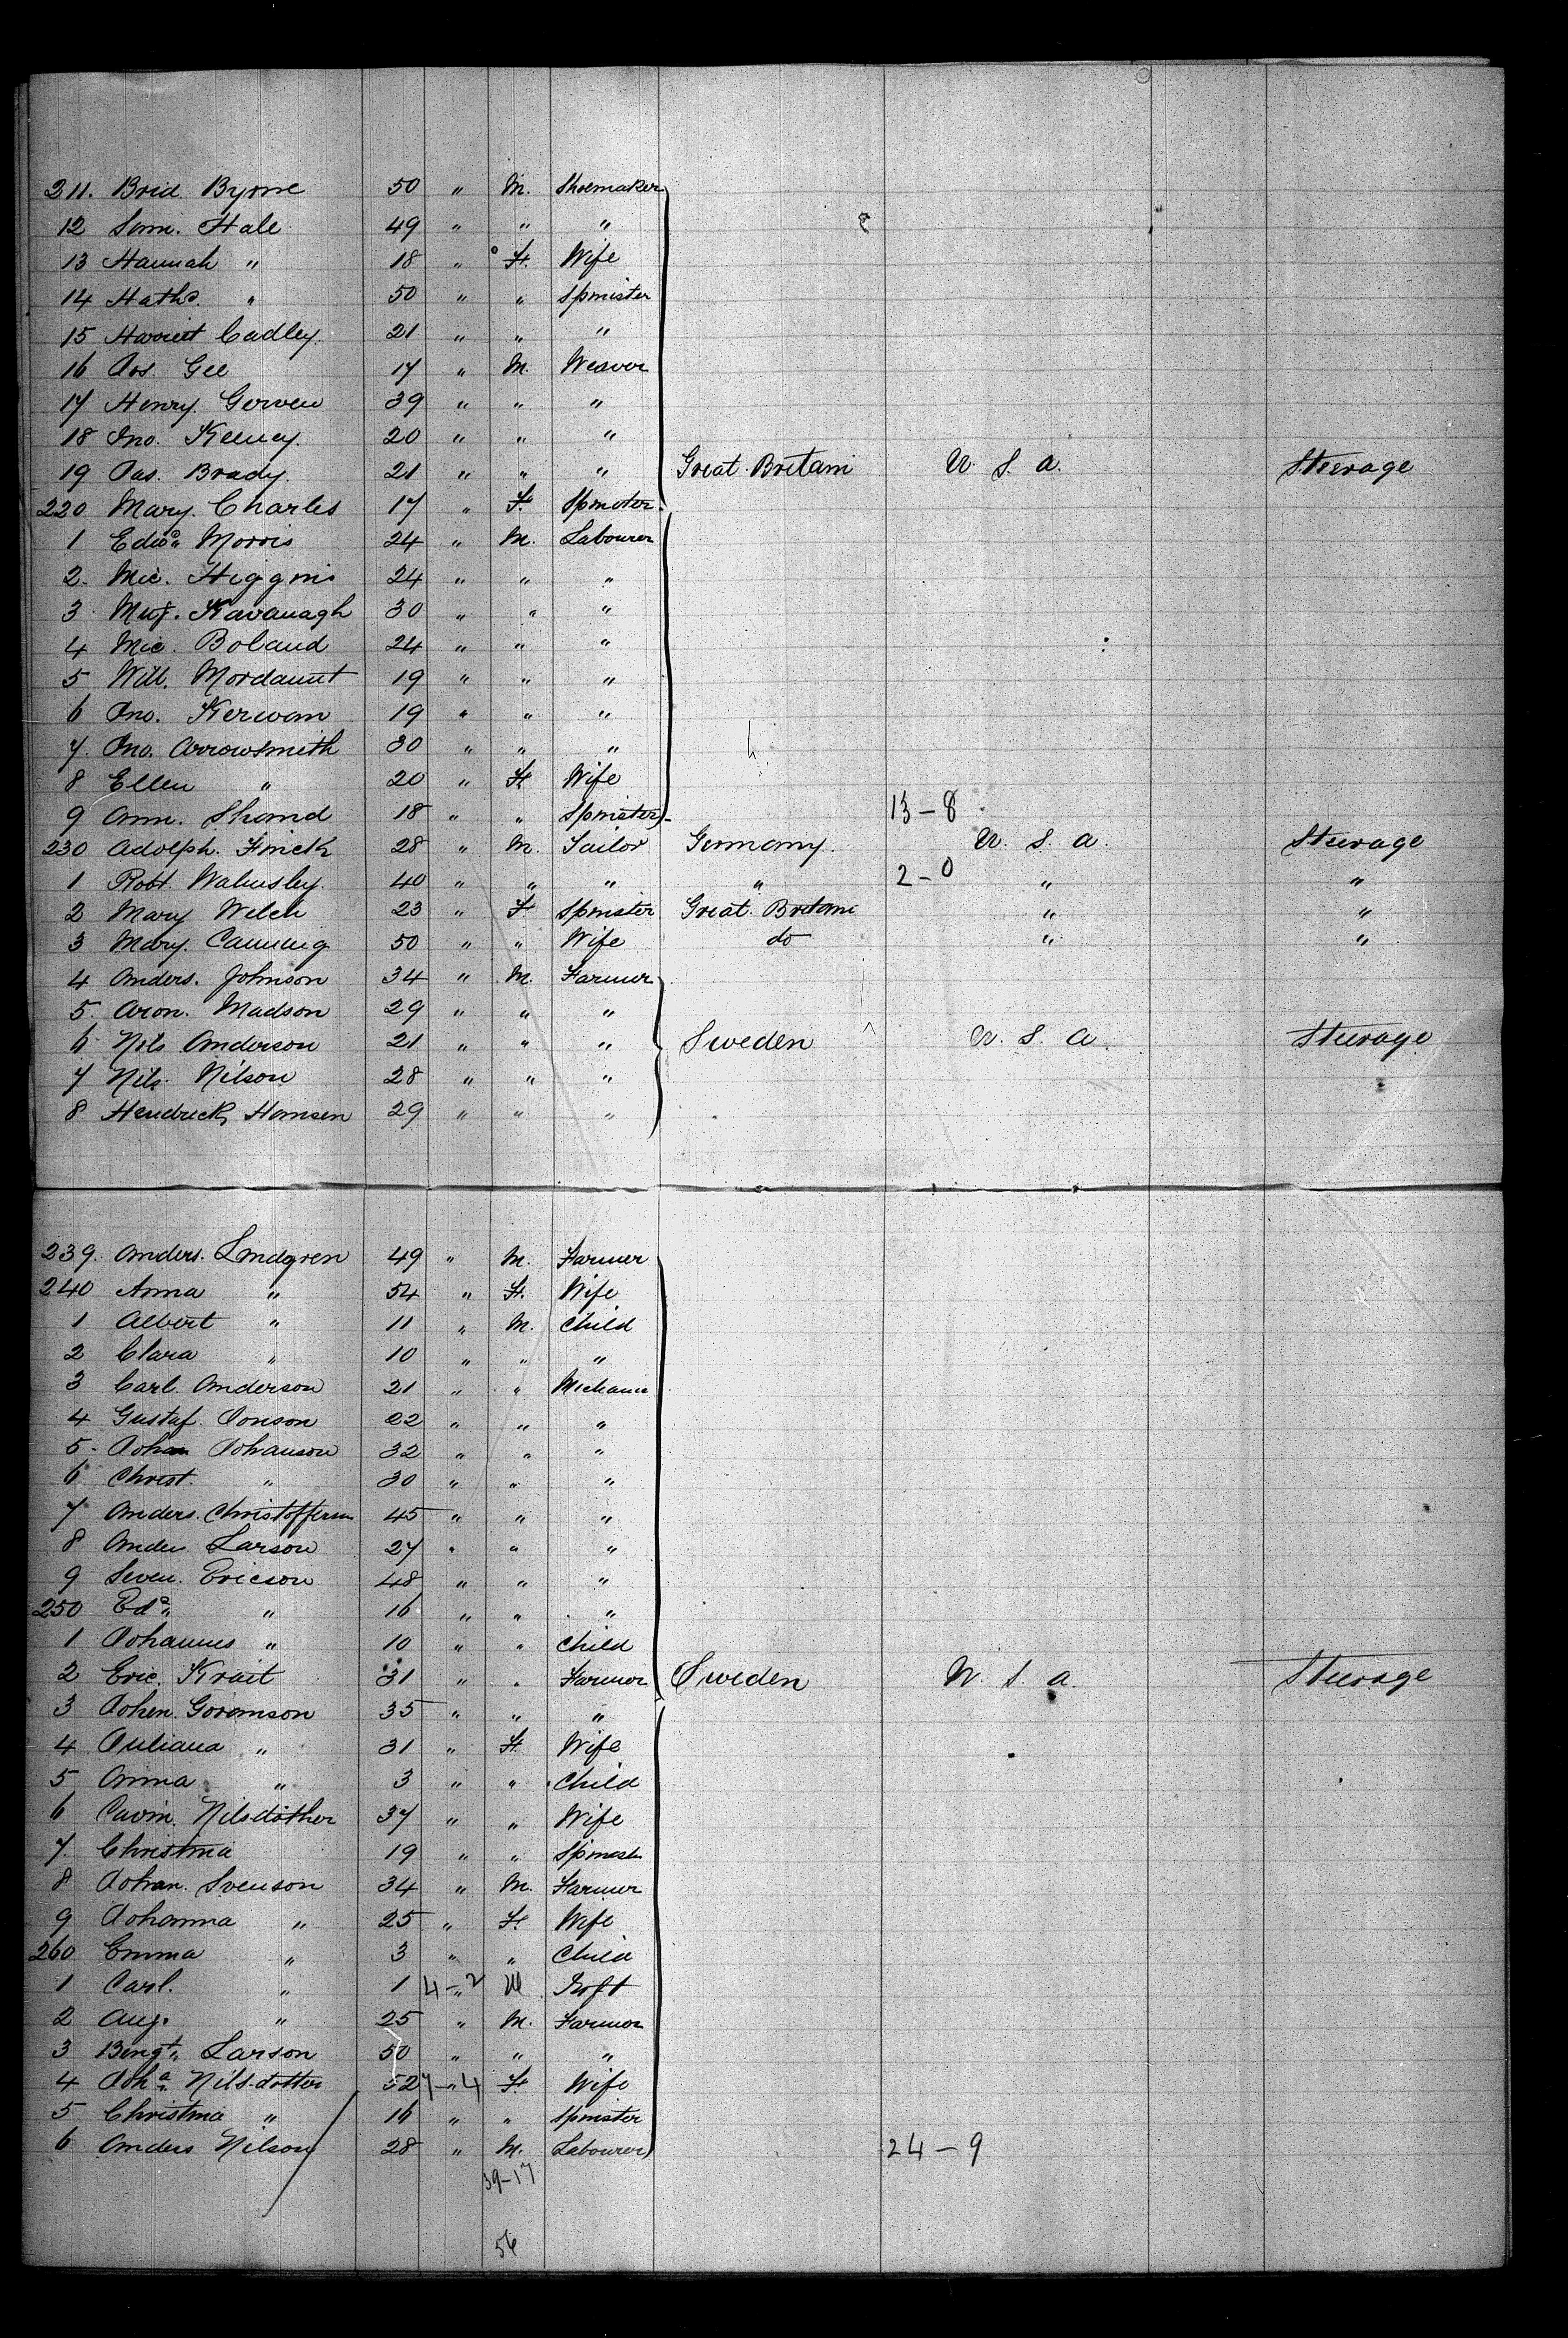 211. Brid Byrne 50 " M. Shoemaker
12 Sam. Hale 49 " " "
13 Hannah " 18 " F. Wife
14 Hath? " 50 " " Spinister
15 Harriet Cadley. 21 " " "
16 Jos. Gee 17 " M. Weaver
17 Henry. Gerven 39 " " "
18 Jno. Keeney. 20 " " "
19 Jas. Brady. 21 " " " Great Britain U. S. A. Steerage
220 Mary. Charles 17 " F. Spinster
1 Edwd Morris 24 " M. Labourer
2. Mic. Higgins 24 " " "
3 Kavanagh 30 " " "
4 Mic. Boland 24 " " "
5 Will. Mordaunt 19 " " "
6 Jno. Kerwan 19 " " "
7. Jno. Arrowsmith 30 " " "
8 Ellen " 20 " F. Wife
9 Ann. 18 " " Spinister 13-8
230 Adolph. Finck 28 " M. Tailor Germany. U. S. A. Steerage
1 Robt. Walmsley. 40 " " " " 2-0 " "
2 Mary Welch 23 " F Spinster Great Britain " "
3 Mary. Canning 50 " " Wife do " "
4 Anders. Johnson 34 " M. Farmer
5. Aron. Madson 29 " " "
6 Nils Anderson 21 " " " Sweden U. S. A. Steerage
7 Nils. Nilson 28 " " "
8 Hendrick Hansen 29 " " "
239. Anders. Lindgren 49 " M. Farmer
240 Anna " 54 " F. Wife
1 Albert " 11 " M. Child
2 Clara " 10 " " "
3 Carl. Anderson 21 " " Mechanic
4 Gustaf. Jonson 22 " " "
5. Johan Johanson 32 " " "
6 Christ. " 30 " " "
7 Anders. Christofferson 45 " " "
8 Anders Larson 27 " " "
9 Seven. Ericson 48 " " "
250 Eda " 16 " " "
1 Johannes " 10 " " Child
2 Eric. Krait 31 " " Farmer Sweden U. S. A. Steerage
3 Johen. Goranson 35 " " "
4 Juliana " 31 " F. Wife
5 Anna " 3 " " Child
6 Carin. Nilsdother 37 " " Wife
7. Christina 19 " " Spinster
8 Johan. Svenson 34 " M. Farmer
9 Johanna " 25 " F. Wife
260 Emma " 3 " " Child
1 Carl. " 1 4-2 " M Inft
2 Aug. " 25 " M. Farmer
3 Bengt. Larson 50 " " "
4 Joha. Nilsdotter 52 7-4 " F. Wife
5 Christina " 16 " " Spinster
6 Anders Nilson 28 " M. Labourer 24-9
39-17
56